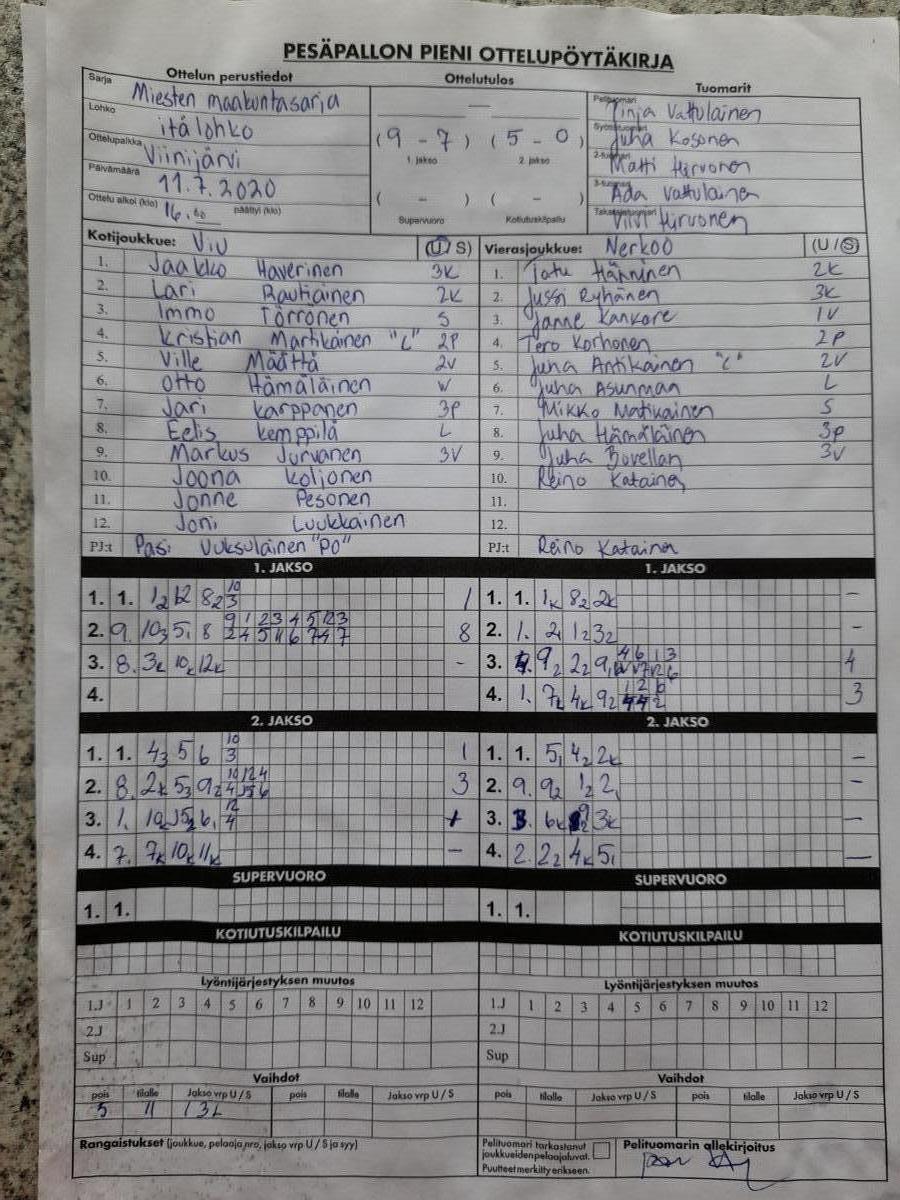 PESÄPALLON PIENI OTTELUPÖYTÄKIRJA
Ottelun perustiedot
Ottelutulos
Tuomarit
Sarja Miesten maakuntasarja
Lohko itälohko
Ottelupaikka Viinijärvi
Päivämäärä 11.7.2020
Ottelu alkoi (klo) 16. päättyi (klo)
—
(9 - 7) (5 - 0)
1. jakso 2. jakso
( - ) ( - )
Supervuoro Kotiutuskilpailu
Pelituomari Tinja Vattulainen
Juha Kosonen
2-tuomari Matti Hirvonen
3-tuomari Ada Vattulainen
Takatuomari Viivi Hirvonen
Kotijoukkue: ViU (U/S)
1. Jaakko Haverinen 3K
2. Lari Rautiainen 2K
3. Immo Törrönen S
4. Kristian Martikainen "C" 2P
5. Ville Määttä 2V
6. Otto Hämäläinen
7. Jari Karppanen 3P
8. Eelis Kemppilä L
9. Markus Jurvanen 3V
10. Joona Koljonen
11. Jonne Pesonen
12. Joni Luukkainen
PJ:t Pasi Vuksulainen "PO"
Vierasjoukkue: Nerkoo (U/S)
1. Tatu Hänninen 2K
2. Jussi Ryhänen 3K
3. Janne Kankare 1V
4. Tero Korhonen 2P
5. Juha Antikainen "C" 2V
6. Juha Asunmaa L
7. Mikko Matikainen S
8. Juha Hämäläinen 3P
9. Juha Bovellan 3V
10. Reino Katainen
11.
12.
PJ:t Reino Katainen
1. JAKSO
1. 1. 1
2. 9. 8
3. 8. 3K 10K 12K -
4.
1. JAKSO
1. 1. 1K 8₂ 2K -
2. 1. 2₁ 1₂ 3₂ -
3. 4
4. 1. 7K 4K 9₂ 3
2. JAKSO
1. 1. 4₃ 5 6 10 3 1
2. 8. 2K 5₃ 9₂ 3
3. 1.
4. 7. 7K 10K 11K -
2. JAKSO
1. 1. 5₁ 4₂ 2K -
2. 9. 9₂ 1₂ 2₁ -
3. -
4. 2. 2₂ 4K 5₁ -
SUPERVUORO
1. 1.
SUPERVUORO
1. 1.
KOTIUTUSKILPAILU
KOTIUTUSKILPAILU
Lyöntijärjestyksen muutos
1.J 1 2 3 4 5 6 7 8 9 10 11 12
2.J
Sup
Lyöntijärjestyksen muutos
1.J 1 2 3 4 5 6 7 8 9 10 11 12
2.J
Sup
Vaihdot
pois tilalle Jakso vrp U / S pois tilalle Jakso vrp U / S
5 11 1 3L
Vaihdot
pois tilalle Jakso vrp U / S pois tilalle Jakso vrp U / S
Rangaistukset (joukkue, pelaaja nro, jakso vrp U / S ja syy)
Pelituomari tarkastanut
joukkueiden pelaajaluvat.
Puutteet merkitty erikseen.
Pelituomarin allekirjoitus